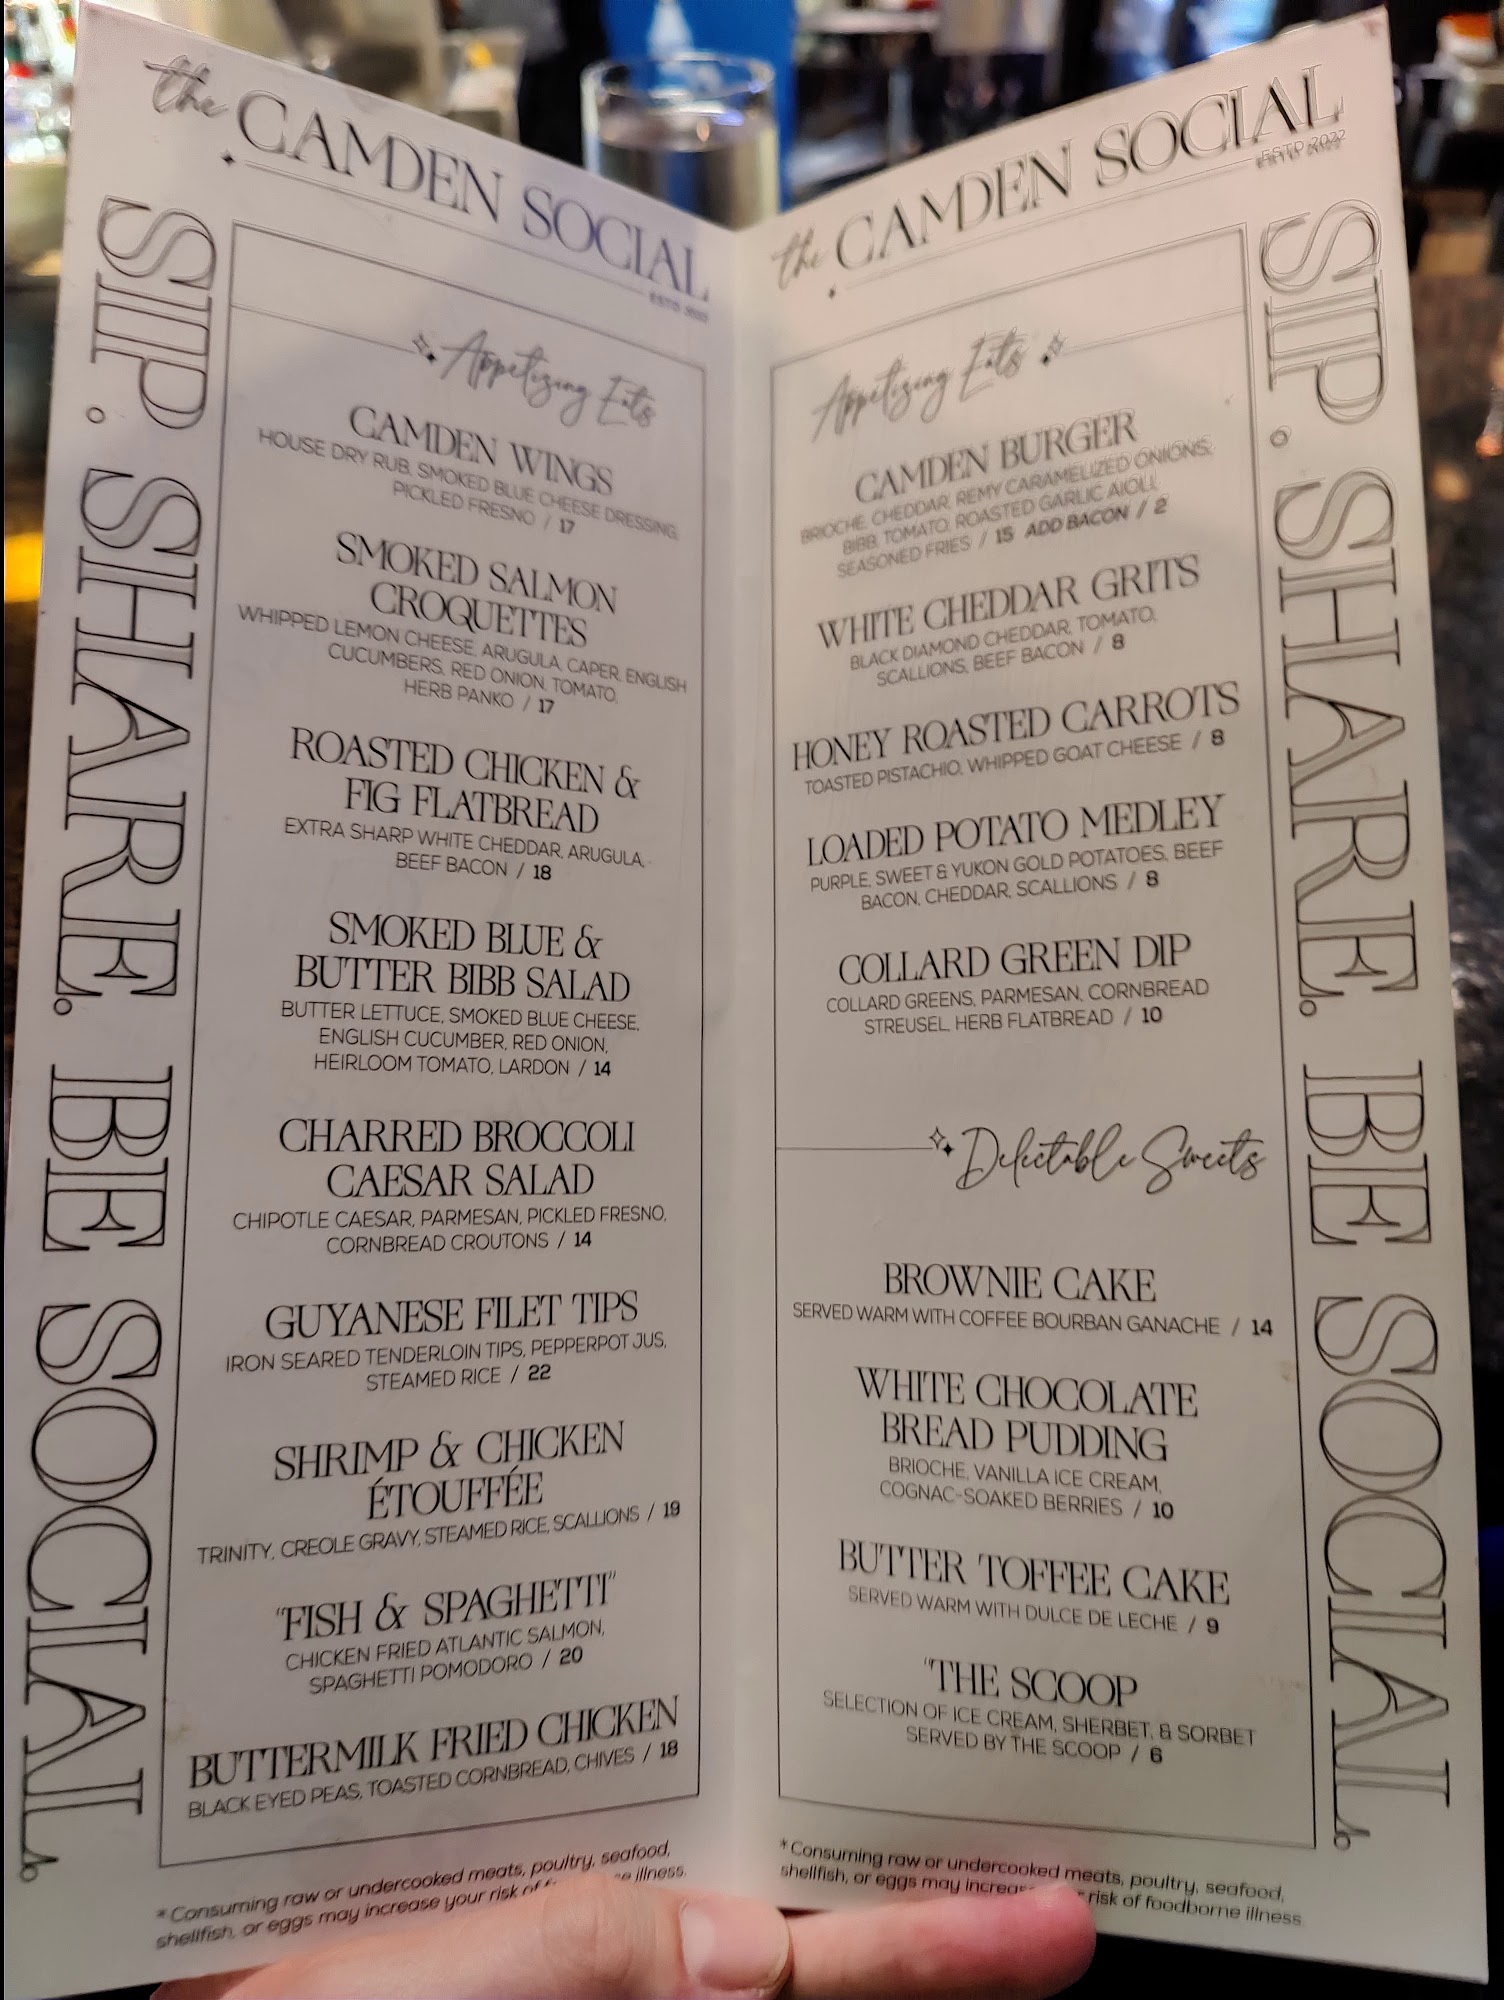 the CAMDEN SOCIAL
ESTD 2022
SIP. SHARE. BE SOCIAL.
Appetizing Eats
CAMDEN WINGS
HOUSE DRY RUB, SMOKED BLUE CHEESE DRESSING,
PICKLED FRESNO / 17
SMOKED SALMON
CROQUETTES
WHIPPED LEMON CHEESE, ARUGULA, CAPER, ENGLISH
CUCUMBERS, RED ONION, TOMATO,
HERB PANKO / 17
ROASTED CHICKEN &
FIG FLATBREAD
EXTRA SHARP WHITE CHEDDAR, ARUGULA,
BEEF BACON / 18
SMOKED BLUE &
BUTTER BIBB SALAD
BUTTER LETTUCE, SMOKED BLUE CHEESE,
ENGLISH CUCUMBER, RED ONION,
HEIRLOOM TOMATO, LARDON / 14
CHARRED BROCCOLI
CAESAR SALAD
CHIPOTLE CAESAR, PARMESAN, PICKLED FRESNO,
CORNBREAD CROUTONS / 14
GUYANESE FILET TIPS
IRON SEARED TENDERLOIN TIPS, PEPPERPOT JUS,
STEAMED RICE / 22
SHRIMP & CHICKEN
ÉTOUFFÉE
TRINITY, CREOLE GRAVY, STEAMED RICE, SCALLIONS / 19
"FISH & SPAGHETTI"
CHICKEN FRIED ATLANTIC SALMON,
SPAGHETTI POMODORO / 20
BUTTERMILK FRIED CHICKEN
BLACK EYED PEAS, TOASTED CORNBREAD, CHIVES / 18
*Consuming raw or undercooked meats, poultry, seafood,
shellfish, or eggs may increase your risk of illness.
the CAMDEN SOCIAL
ESTD 2022
SIP. SHARE. BE SOCIAL.
Appetizing Eats
CAMDEN BURGER
BRIOCHE, CHEDDAR, REMY CARAMELIZED ONIONS,
BIBB, TOMATO, ROASTED GARLIC AIOLI,
SEASONED FRIES / 15 ADD BACON / 2
WHITE CHEDDAR GRITS
BLACK DIAMOND CHEDDAR, TOMATO,
SCALLIONS, BEEF BACON / 8
HONEY ROASTED CARROTS
TOASTED PISTACHIO, WHIPPED GOAT CHEESE / 8
LOADED POTATO MEDLEY
PURPLE, SWEET & YUKON GOLD POTATOES, BEEF
BACON, CHEDDAR, SCALLIONS / 8
COLLARD GREEN DIP
COLLARD GREENS, PARMESAN, CORNBREAD
STREUSEL, HERB FLATBREAD / 10
Delectable Sweets
BROWNIE CAKE
SERVED WARM WITH COFFEE BOURBAN GANACHE / 14
WHITE CHOCOLATE
BREAD PUDDING
BRIOCHE, VANILLA ICE CREAM,
COGNAC-SOAKED BERRIES / 10
BUTTER TOFFEE CAKE
SERVED WARM WITH DULCE DE LECHE / 9
"THE SCOOP
SELECTION OF ICE CREAM, SHERBET, & SORBET
SERVED BY THE SCOOP / 6
*Consuming raw or undercooked meats, poultry, seafood,
shellfish, or eggs may increase risk of foodborne illness.